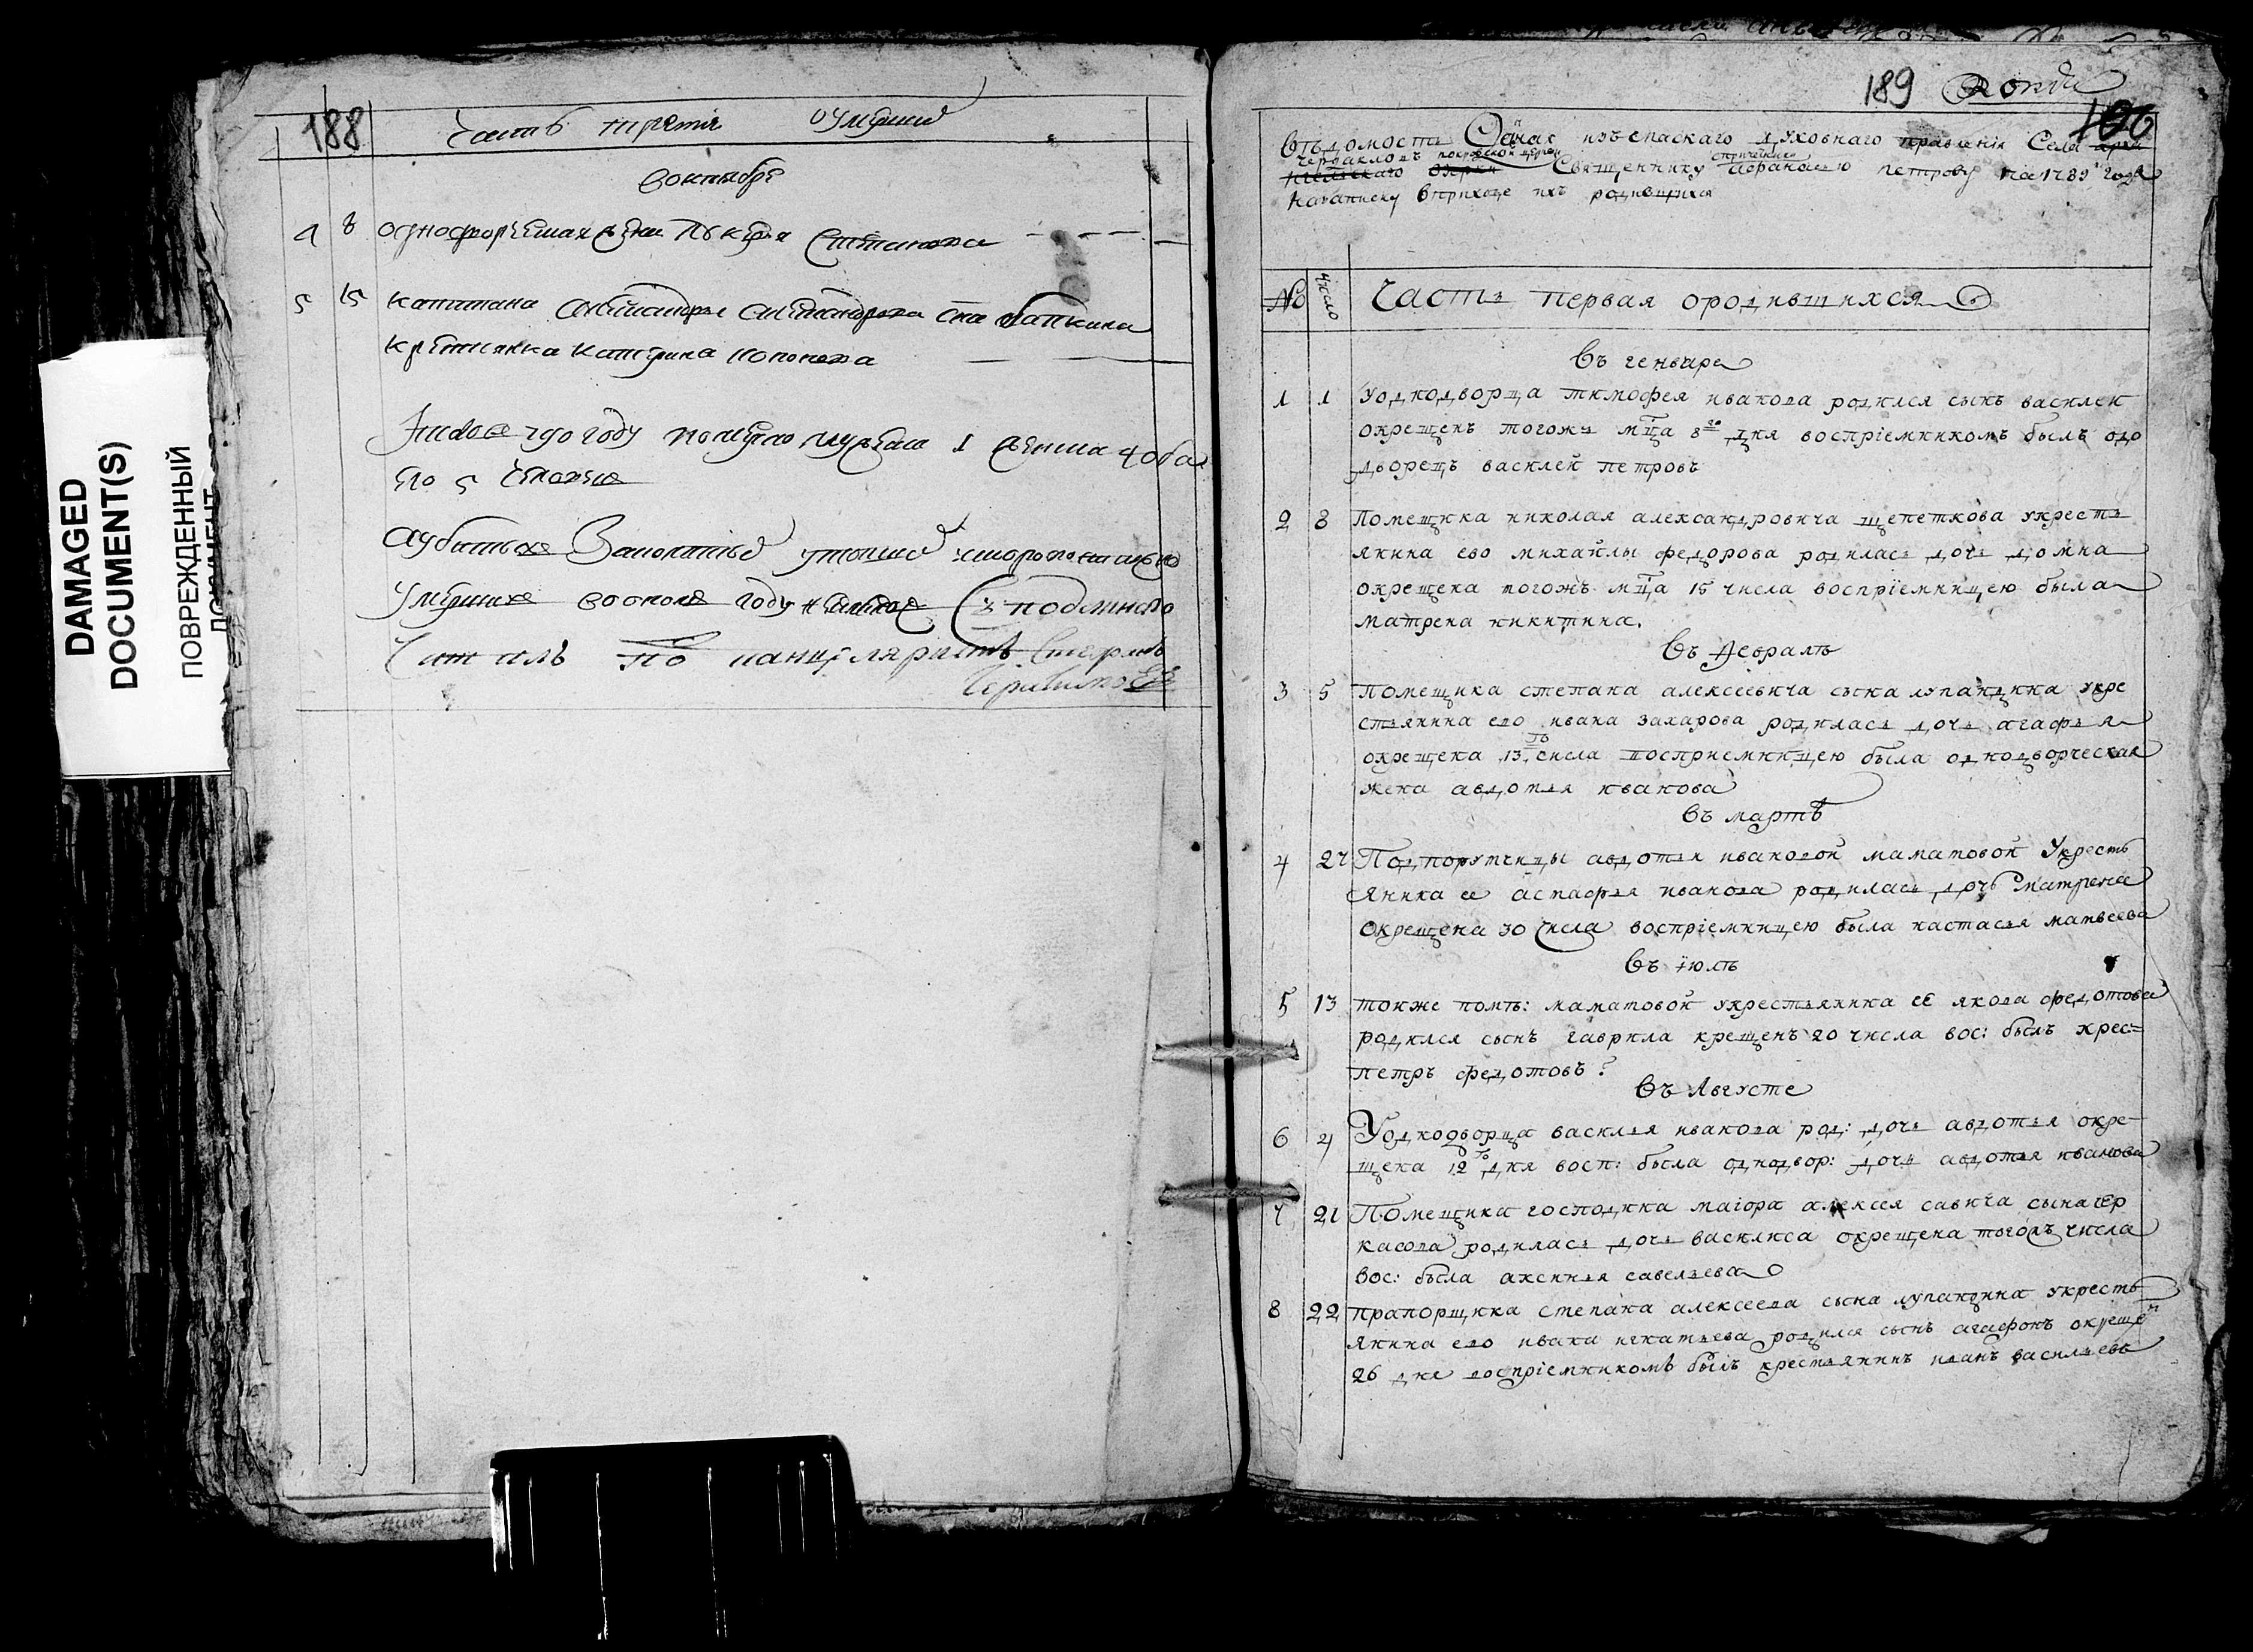 188
Часть третiя о умершихъ
в октябре
4 8 однодворъческая жена Лукерья Степанова
5 15 капитана Александры Александрова сна
крестьянка Катерина
790 году померло мужеска 1 женска 4 обаего
по 5 человекъ
а убитыхъ утопшихъ скоропостижно
умершихъ во оном году с подлиннымъ
Читалъ по канцеляристъ
DAMAGED
DOCUMENT(S)
ПОВРЕЖДЕННЫЙ
ДОКУМЕНТ
189
190
Вѣдомость Даная изъ спаскаго духовнаго правленiя Села
покровской церкви
Священнику петрову на 1789 годъ
на записку в приходе ихъ родившихся
№ число Часть первая о родившихся
Въ генваре
1 1 У однодворца тимофея иванова родился сынъ василей
окрещенъ тогожъ мца 8го дня воспрiемникомъ былъ одно
дворецъ василей петровъ
2 8 Помещика николая александровича щепеткова у кресть
янина ево михайлы федорова родилась дочь домна
окрещена тогожъ мца 15 числа воспрiемницею была
матрена никитина.
Въ Февралѣ
3 5 Помещика степана алексеевича сына лупандина у кре
стьянина ево ивана захарова родилась дочь агафья
окрещена 13го числа восприемницею была однодворческая
жена авдотья иванова
Въ мартѣ
4 27 Подпорутчицы авдотьи ивановой маматовой У кресть
янина ее астафья иванова родилась дочь матрена
Окрещена 30 числа воспрiемницею была настасья матвеева
Въ iюлѣ
5 13 тойже помѣ: маматовой у крестьянина ее якова федотова
родился сынъ гаврила крещенъ 20 числа вос: былъ крес=
петръ федотовъ
Въ Августе
6 4 У однодворца василья иванова род: дочь авдотья окре-
щена 12го дня восп: была однодвор: дочь авдотья иванова
7 21 Помещика господина маiора алексея савича сына чер
касова родилась дочь василиса окрещена тогожъ числа
вос: была аксинья савельева
8 22 прапорщика степана алексеева сына лупандина у кресть
янина ево ивана игнатьева родился сынъ агафонъ окрещен
26 дня воспрiемникомъ былъ крестьянинъ иванъ васильевъ